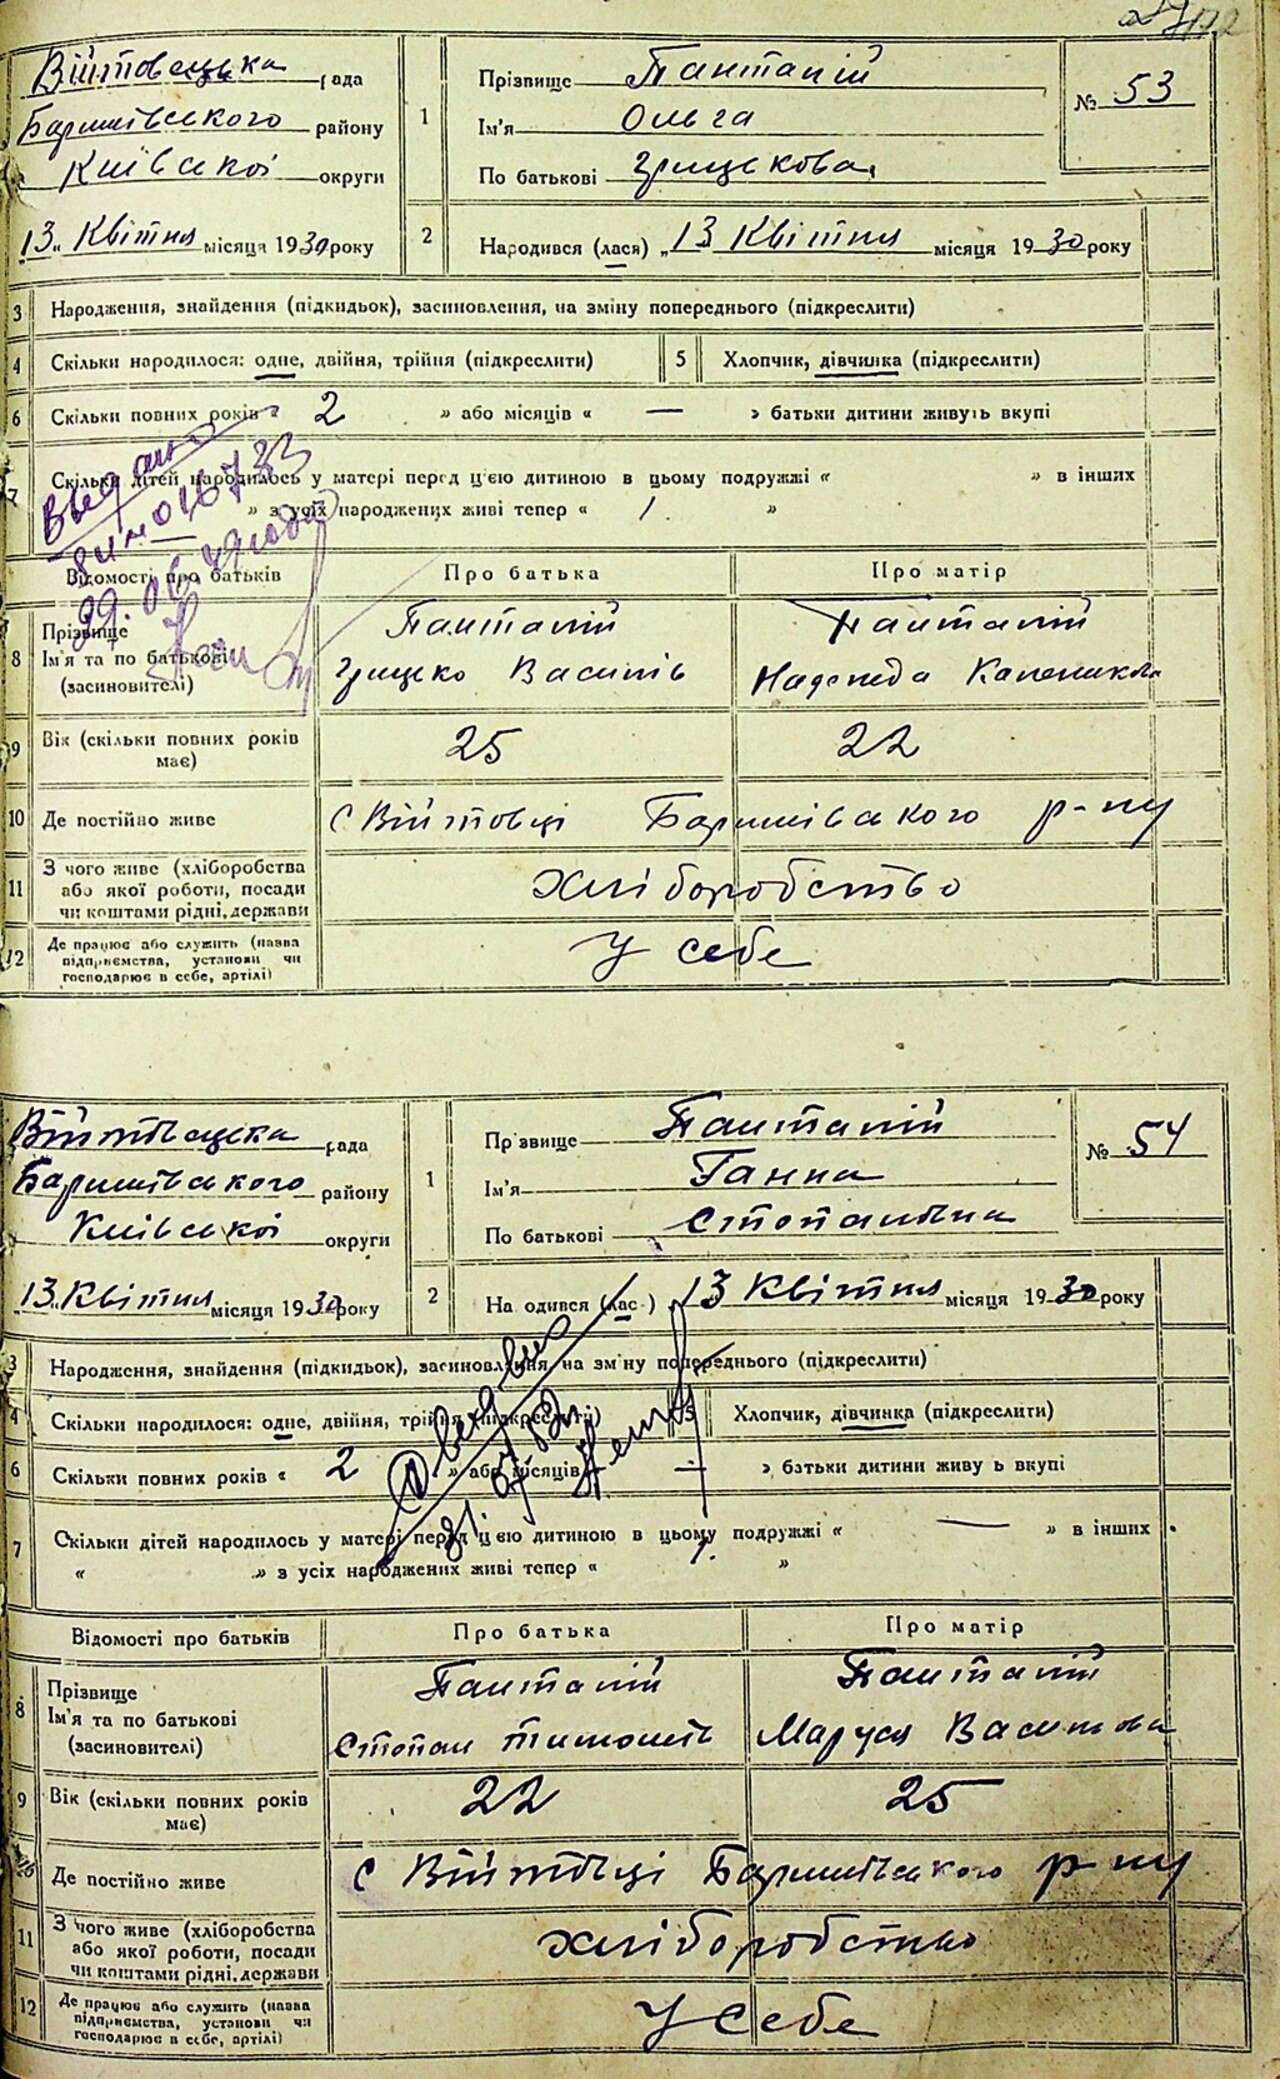 Війтовецька рада
Баришівського району
Київської округи
13 Квітня місяця 1930 року
1
Прізвище Панталій
Ім'я Ольга
По батькові Грицькова
№ 53
2
Народився (лася) „13 Квітня місяця 1930 року
3 Народження, знайдення (підкидьок), засиновлення, на зміну попереднього (підкреслити)
4 Скільки народилося: одне, двійня, трійня (підкреслити) 5 Хлопчик, дівчинка (підкреслити)
6 Скільки повних років « 2 » або місяців « — » батьки дитини живуть вкупі
7 Скільки дітей народилось у матері перед цією дитиною в цьому подружжі « » в інших
» з усіх народжених живі тепер « 1 »
Выдано
016733
Відомості про батьків Про батька Про матір
8 Прізвище
Ім'я та по батькові
(засиновителі)
Панталій
Грицько Василів
Панталій
Надежда
9 Вік (скільки повних років має) 25 22
10 Де постійно живе с Війтовці Баришівського р-ну
11 З чого живе (хліборобства
або якої роботи, посади
чи коштами рідні, держави
хліборобство
12 Де працює або служить (назва
підприємства, установи чи
господарює в себе, артілі)
У себе
Війтовецька рада
Баришівського району
Київської округи
13 Квітня місяця 1930 року
1
Прізвище Панталій
Ім'я Ганна
По батькові Стопанівна
№ 54
2
Народився (лас ) „13 Квітня місяця 1930 року
3 Народження, знайдення (підкидьок), засиновлення, на зміну попереднього (підкреслити)
4 Скільки народилося: одне, двійня, трійня (підкреслити) 5 Хлопчик, дівчинка (підкреслити)
6 Скільки повних років « 2 » або місяців — » батьки дитини живу ь вкупі
7 Скільки дітей народилось у матері перед цією дитиною в цьому подружжі « — » в інших
« » з усіх народжених живі тепер « 1. »
Відомості про батьків Про батька Про матір
8 Прізвище
Ім'я та по батькові
(засиновителі)
Панталій
Стопан Тимошів
Панталій
Маруся Василова
9 Вік (скільки повних років має) 22 25
Де постійно живе с Війтовці Баришівського р-ну
11 З чого живе (хліборобства
або якої роботи, посади
чи коштами рідні, держави
хліборобство
12 Де працює або служить (назва
підприємства, установи чи
господарює в себе, артілі)
У себе